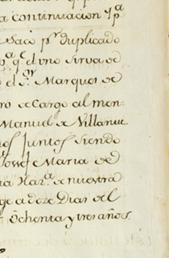 a continuacion y pª
Saco pr Duplicado
pª qe el uno sirva de
el Sor Marques de
ro se Cargo al mon-
Manuel de Villanue
tos Juntos siendo
Josef Maria de
ia Hazª de nuestra
ge a doze Dias del
Ochenta y tres años